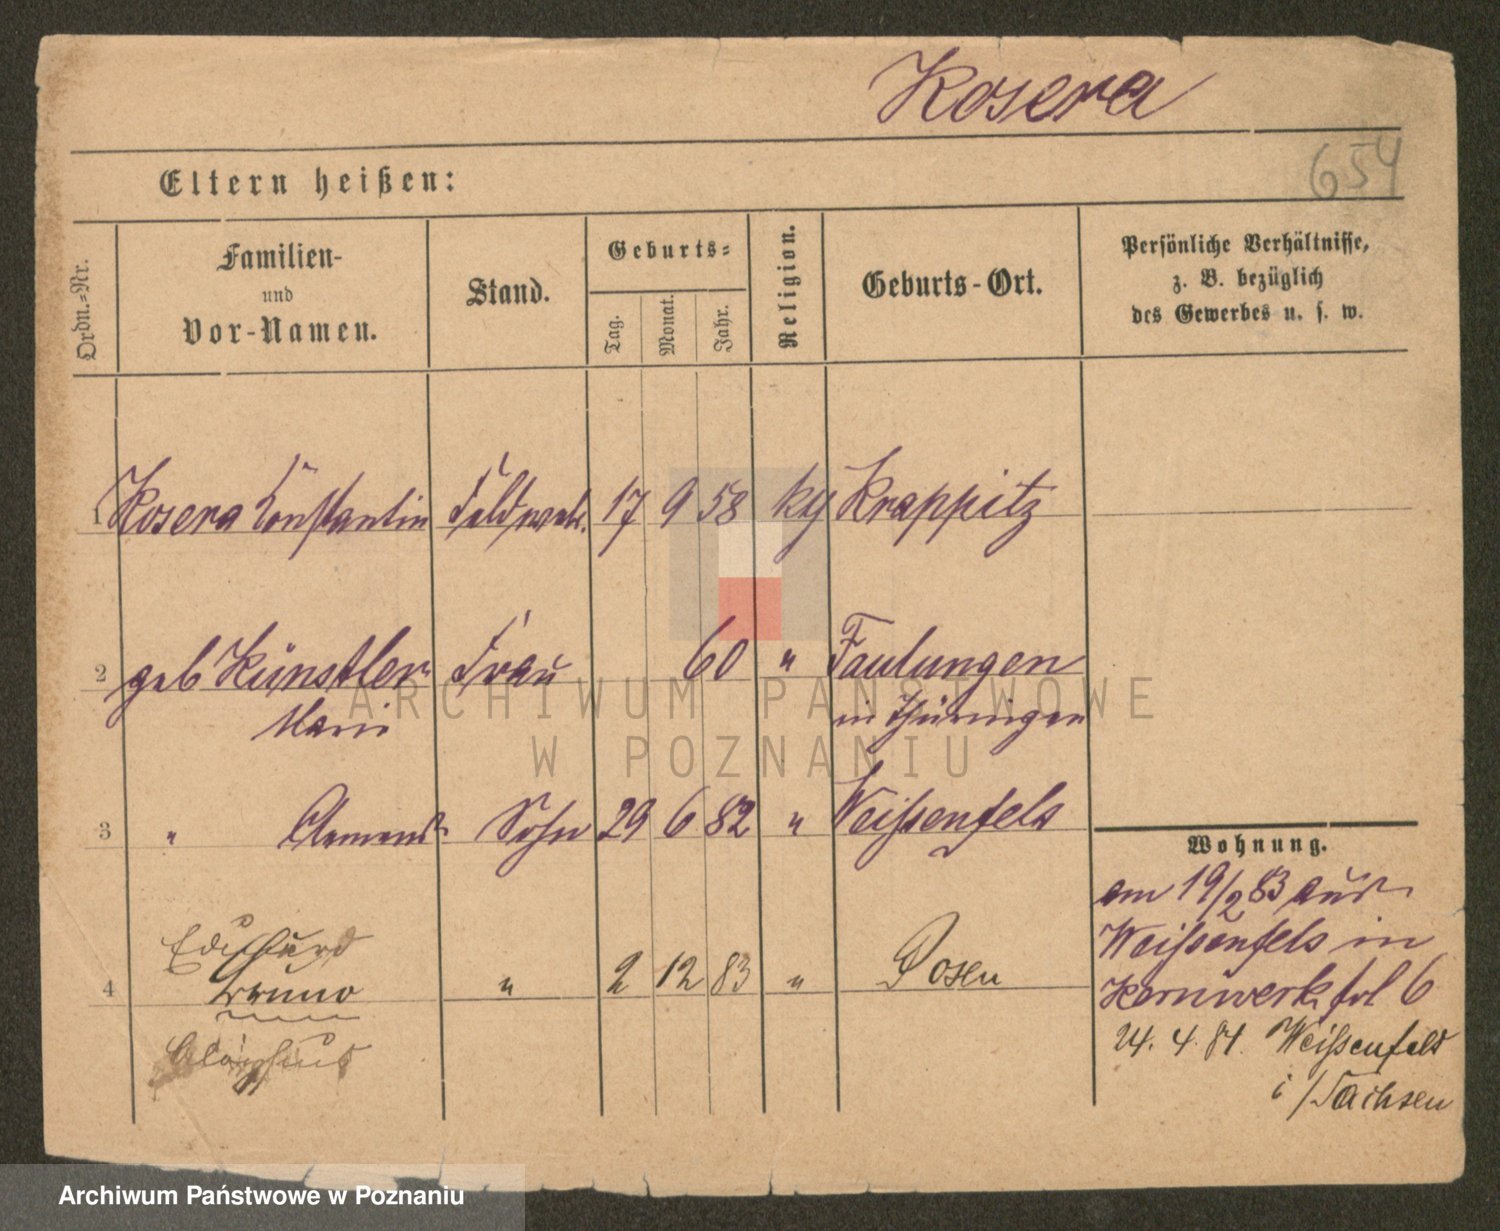 Kosera
654
Eltern heißen:
Ordn.=Nr.
Familien-
und
Vor-Namen.
Stand.
Geburts=
Tag.
Monat.
Jahr.
Religion.
Geburts-Ort.
Persönliche Verhältnisse,
z. B. bezüglich
des Gewerbes u. s. w.
1 Kosera Constantin Feldweb. 17 9 58 Krappitz
2 geb Künstler Frau 60 " Faulungen
Marie in Thüringen
3 " Clemens Sohn 29 6 82 " Weißenfels
Wohnung.
am 19/2 83 aus
Weißenfels in
Kernwerk 6
4 Eduard
Bruno " 2 12 83 " Posen
Aloysius
24. 4. 84. Weißenfels
i/Sachsen
ARCHIWUM PAŃSTWOWE
W POZNANIU
Archiwum Państwowe w Poznaniu